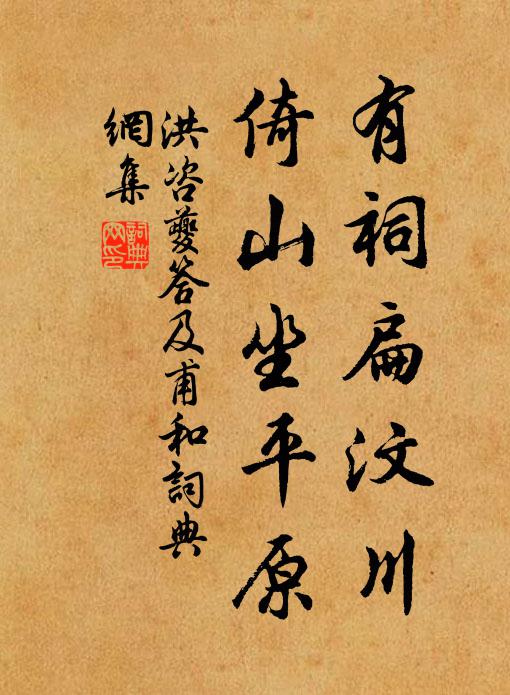 有祠扁汶川
倚山坐平原
洪咨夔答及甫和詞典
網集
詞典网印